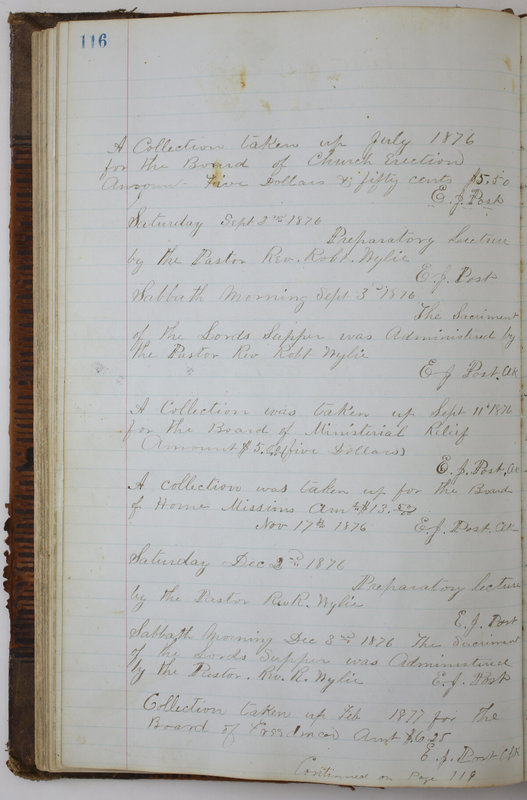 116
A Collection taken up July 1876
for the Board of Church Erection
Amount Five Dollars & fifty cents $5.50
E. J. Post
Saturday Sept 2nd 1876
Preparatory Lecture
by the Pastor Rev. Robt. Wylie
E. J. Post
Sabbath Morning Sept 3rd 1876
The Sacriment
of the Lords Supper was Administred by
the Pastor Rev Robt Wylie
E J Post, Clk
A Collection was taken up Sept 11th 1876
for the Board of Ministerial Relief
Amount $5.00 (five Dollars)
E. J. Post, Clk
A collection was taken up for the Board
of Home Missions Amt $13.50
Nov 17th 1876 E. J. Post. Clk
Saturday Dec 2nd 1876
Preparatory lecture
by the Pastor Rev R. Wylie
E. J. Post
Sabbath Morning Dec 3rd 1876 The Sacriment
of the Lords Supper was Administered
by the Pastor. Rev. R. Wylie E. J. Post
Collection taken up Feb 1877 for the
Board of Freedmen Amt $6.25
E. J. Post Clk
Continued on Page 119